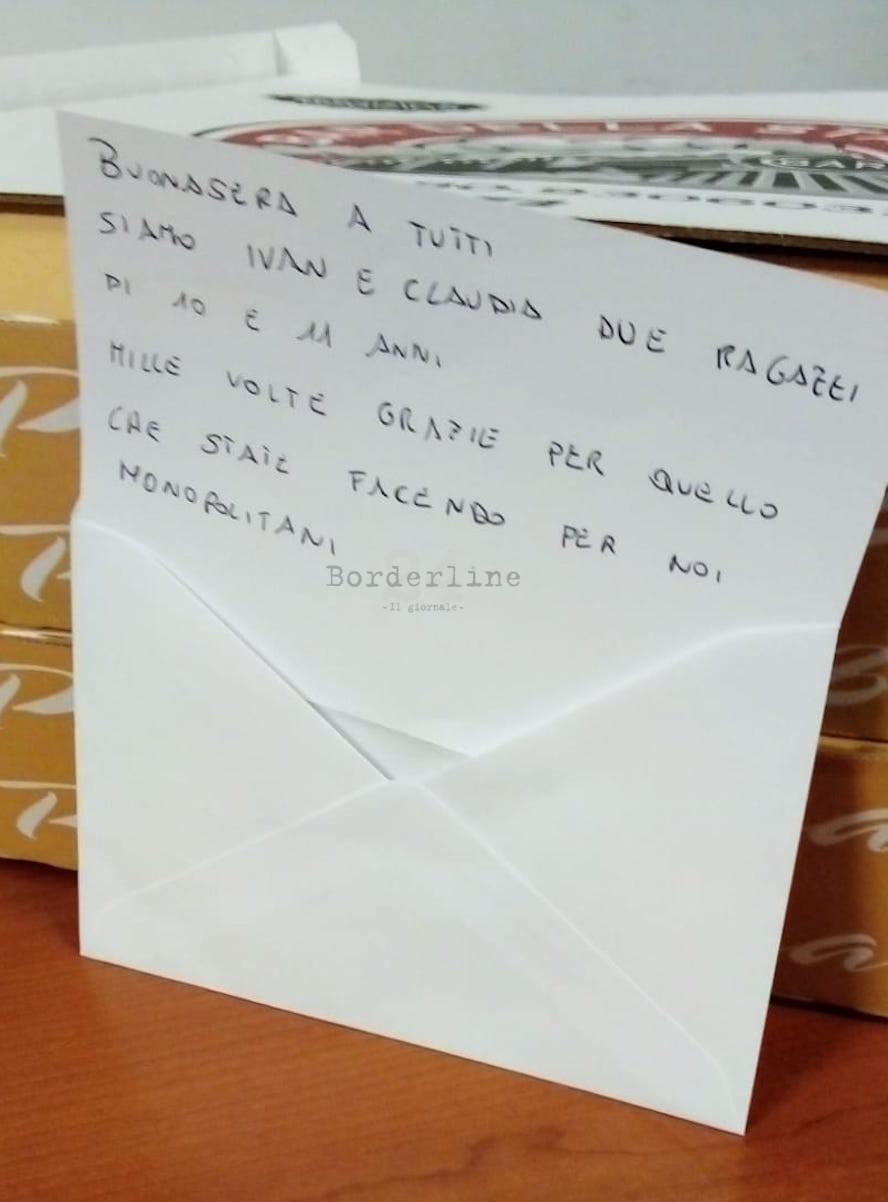 DELLA
BUONASERA A TUTTI
SIAMO IVAN E CLAUDIA DUE RAGAZZI
DI 10 E 11 ANNI
MILLE VOLTE GRAZIE PER QUELLO
CHE STATE FACENDO PER NOI
MONOPOLITANI
Borderline
-Il giornale-